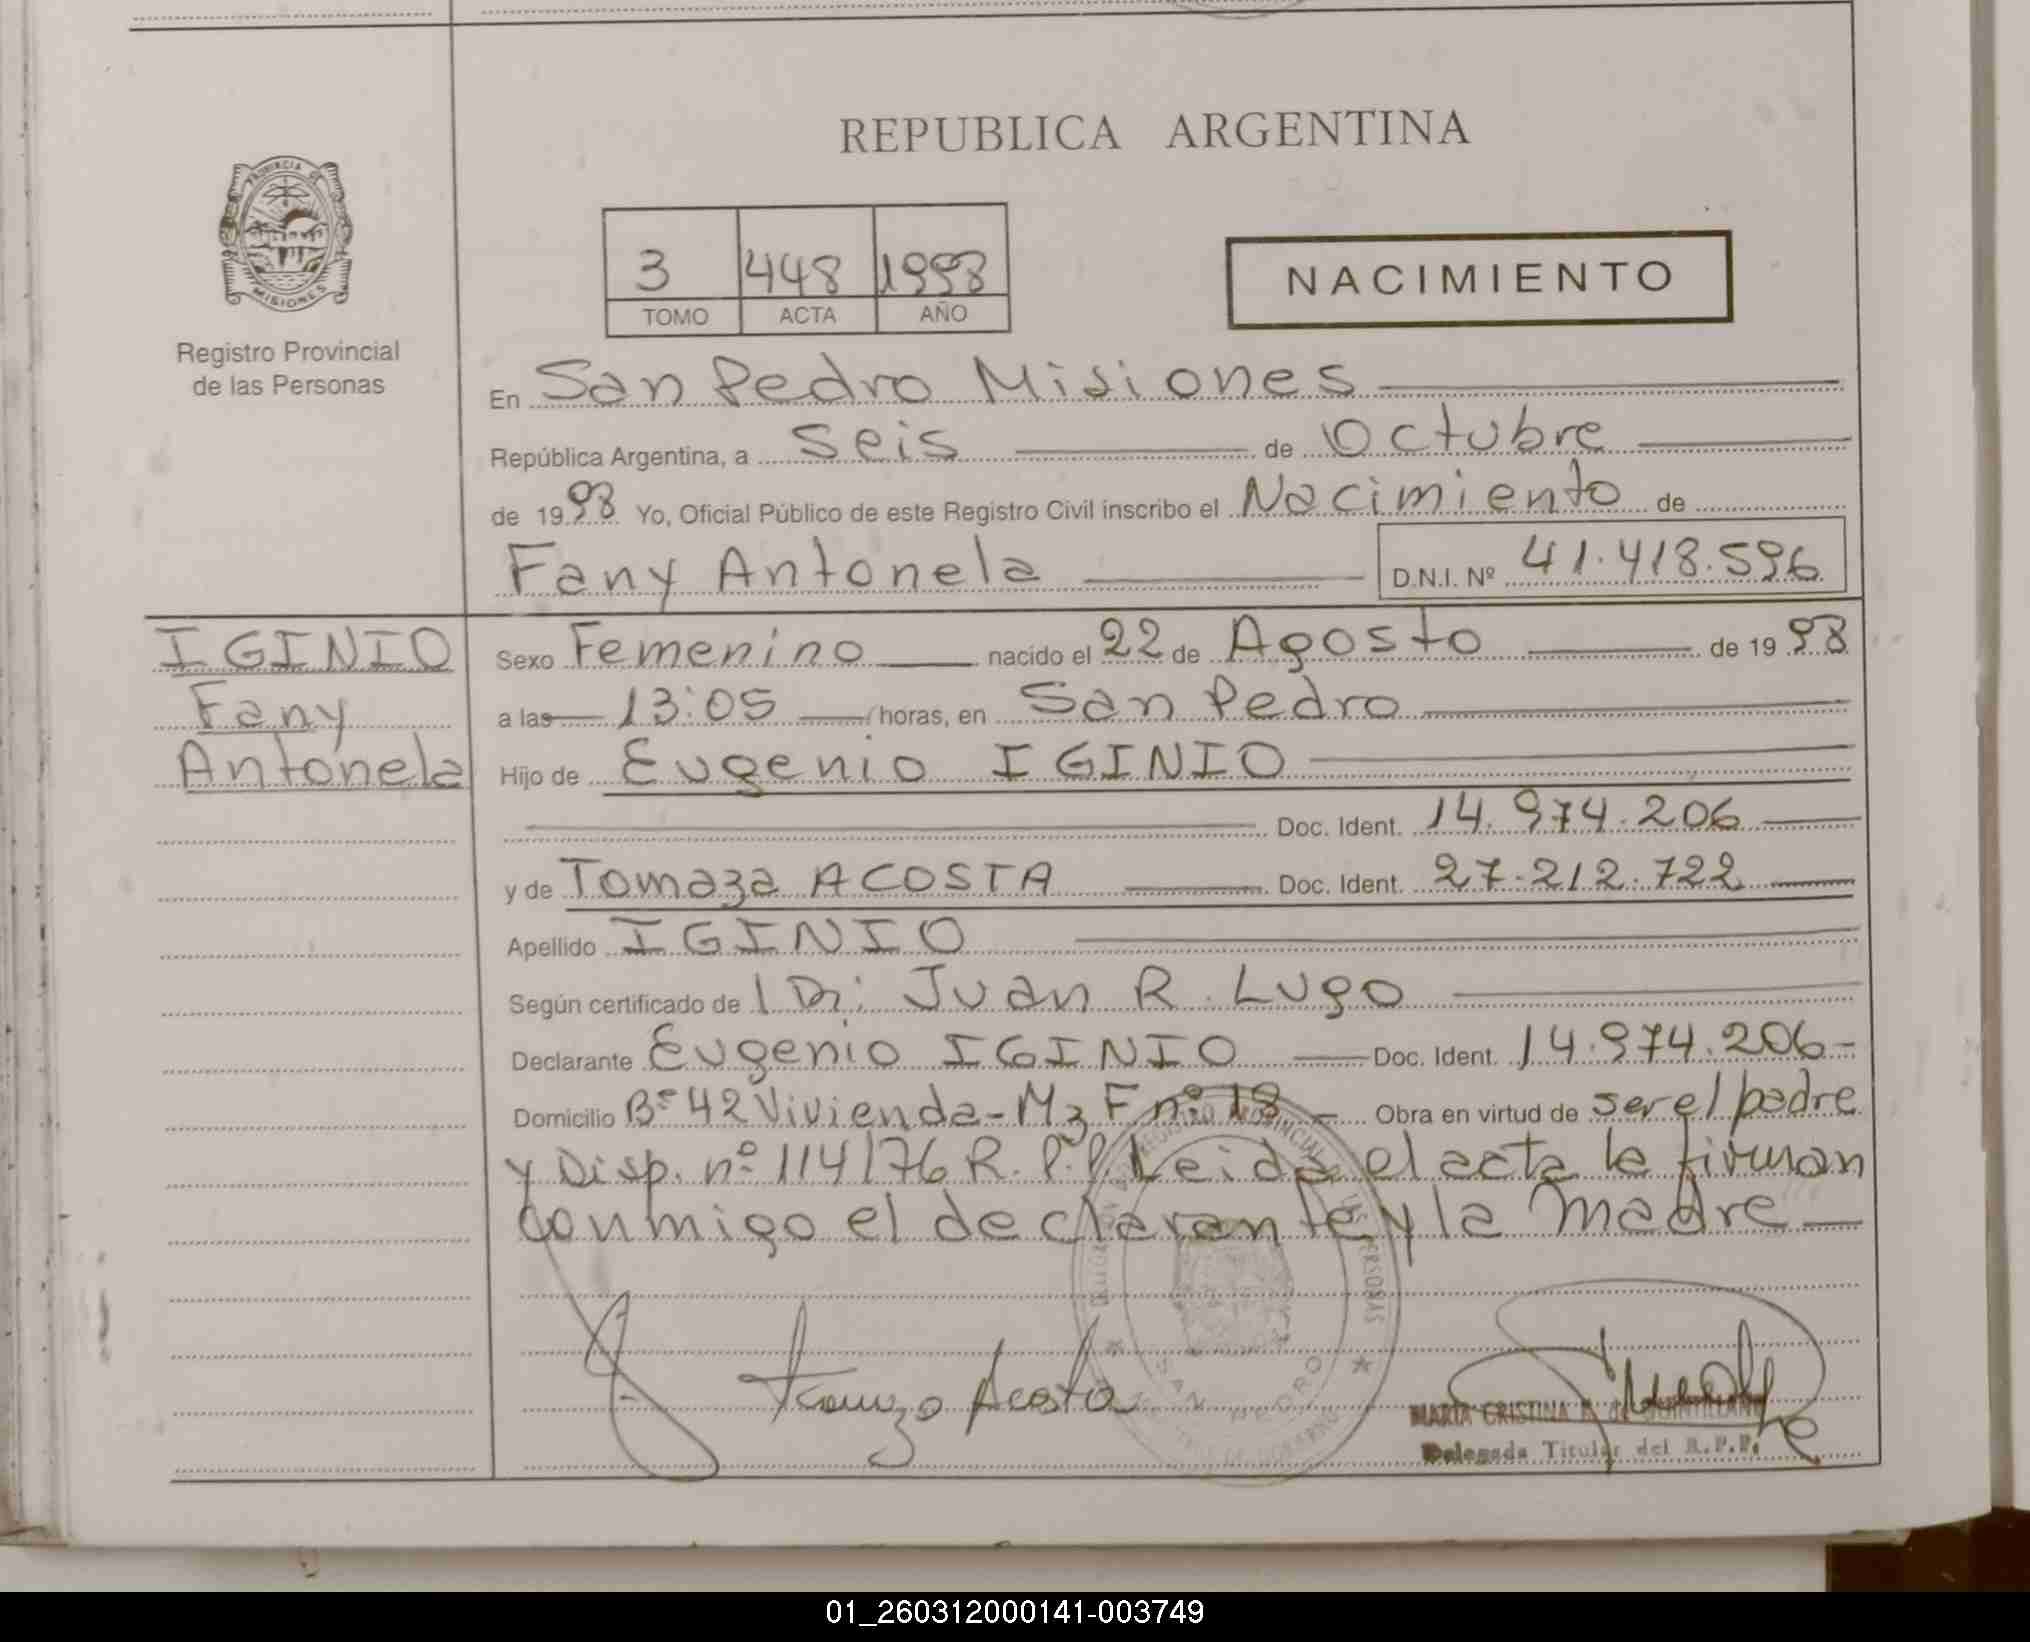 REPUBLICA ARGENTINA
PROVINCIA DE
MISIONES
Registro Provincial
de las Personas
3 448 1998
TOMO ACTA AÑO
NACIMIENTO
En San Pedro Misiones
República Argentina, a seis de Octubre
de 1998 Yo, Oficial Público de este Registro Civil inscribo el Nacimiento de
Fany Antonela D.N.I. Nº 41.418.596
IGINIO
Fany
Antonela
Sexo Femenino nacido el 22 de Agosto de 1998
a las 13:05 horas, en San Pedro
Hijo de Eugenio IGINIO
Doc. Ident. 14.974.206
y de Tomaza ACOSTA Doc. Ident. 27.212.722
Apellido IGINIO
Según certificado de l Dr. Juan R. Lugo
Declarante Eugenio IGINIO Doc. Ident. 14.974.206-
Domicilio Bº 42 Vivienda-Mz F nº 18 - Obra en virtud de ser el padre
y Disp. nº 114/76 R.P.P. Leida el acta la firman
conmigo el declarante y la madre
Acosta
SAN PEDRO
MARIA CRISTINA
Delegada Titular del R.P.P.
01_260312000141-003749